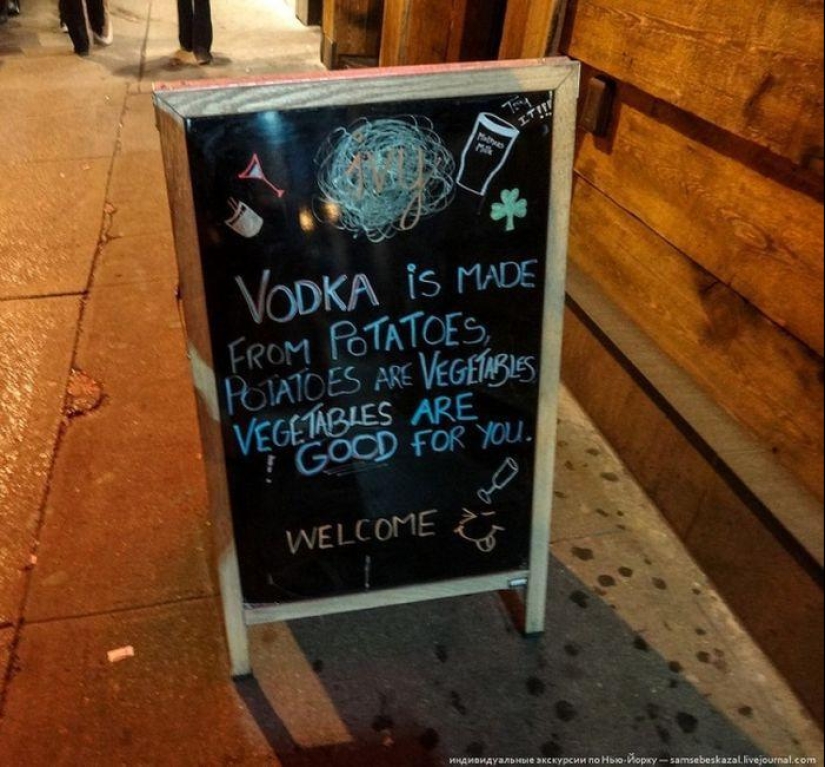 TRY
IT!!!
Mothers
Milk
ivy
VODKA iS MADE
FROM POTATOES,
POTATOES ARE VEGETABLES,
VEGETABLES ARE
GOOD FOR YOU.
WELCOME
индивидуальные экскурсии по Нью-Йорку — samsebeskazal.livejournal.com